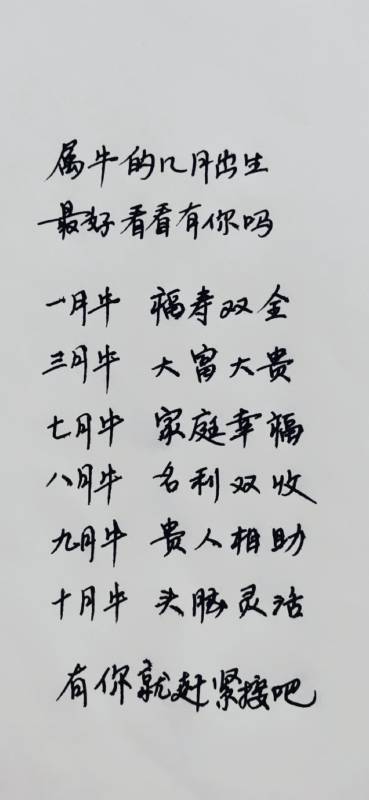 属牛的几月出生
最好看看有你吗
一月牛 福寿双全
三月牛 大富大贵
七月牛 家庭幸福
八月牛 名利双收
九月牛 贵人相助
十月牛 头脑灵活
有你就赶紧接吧